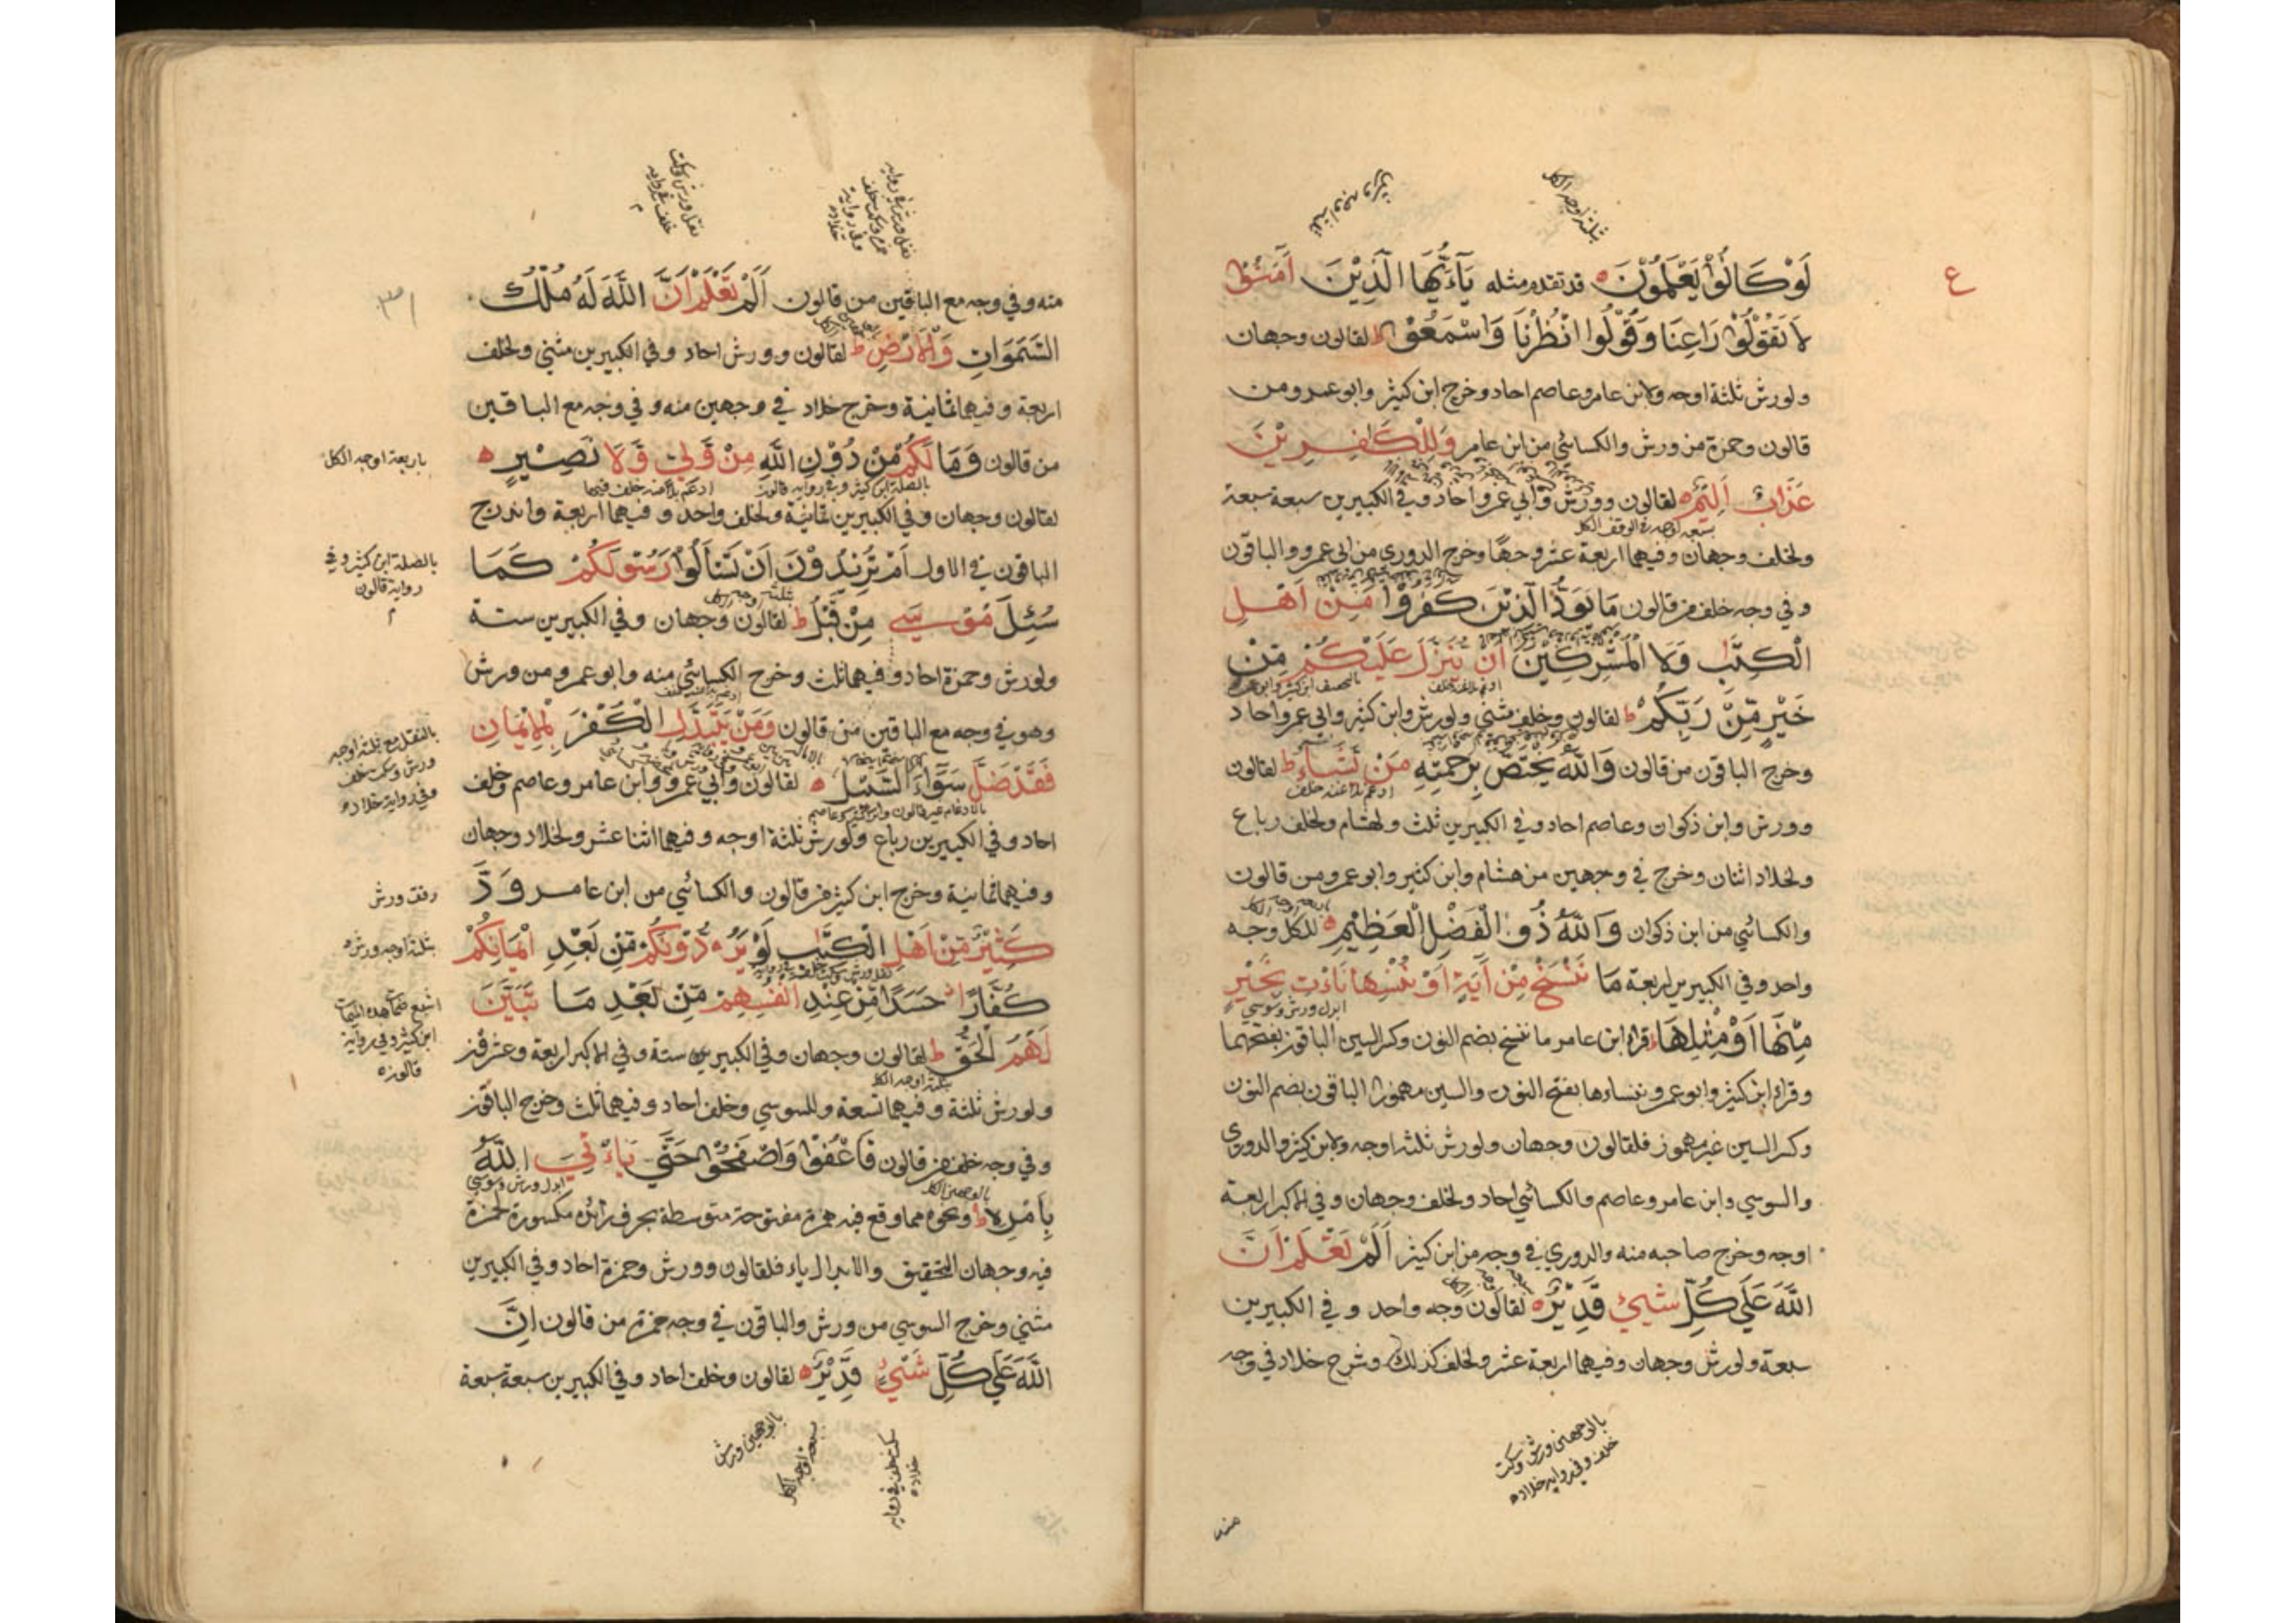 ع
لَوْ كَانُوْا يَعْلَمُوْنَ ه قد تقدم مثله يَآءَيُّهَا الَّذِيْنَ آمَنُوْا
لَا تَقُوْلُوْا رَاعِنَا وَقُوْلُوا انْظُرْنَا وَاسْمَعُوْا ط لقالون وجهان
ولورش ثلثة اوجه ولابن عامر وعاصم احاد وخرج ابن كثير وابو عمرو من
قالون وحمزة من ورش والكسائي من ابن عامر وَلِلْكَافِرِيْنَ
عَذَابٌ اَلِيْمٌ ه لقالون وورش وابي عمرو احاد وفي الكبيرين سبعة سبعة
سبعة اوجه في الوقف للكل
ولخلف وجهان وفيهما اربعة عشر وجها وخرج الدوري من ابي عمرو والباقون
وفي وجه خلف من قالون مَا يَوَدُّ الَّذِيْنَ كَفَرُوْا مِنْ اَهْلِ
الْكِتٰبِ وَلَا الْمُشْرِكِيْنَ اَنْ يُنَزَّلَ عَلَيْكُمْ مِّنْ
خَيْرٍ مِّنْ رَبِّكُمْ ط لقالون وخلف مثنى ولورش وابن كثير وابي عمرو احاد
وخرج الباقون من قالون وَاللّٰهُ يَخْتَصُّ بِرَحْمَتِهِ مَنْ يَّشَآءُ ط لقالون
ادغم بلا غنه خلف
وورش وابن ذكوان وعاصم احاد وفي الكبيرين ثلث ولهشام ولخلف رباع
ولخلاد اثنان وخرج في وجهين من هشام وابن كثير وابو عمرو من قالون
والكسائي من ابن ذكوان وَاللّٰهُ ذُو الْفَضْلِ الْعَظِيْمِ ه للكل وجه
واحد وفي الكبيرين اربعة مَا نَنْسَخْ مِنْ آيَةٍ اَوْ نُنْسِهَا نَاءْتِ بِخَيْرٍ
ابدل ورش وسوسي
مِّنْهَا اَوْ مِثْلِهَا ط قراء ابن عامر ما ننسخ بضم النون وكسر السين الباقون بفتحهما
وقراء ابن كثير وابو عمرو ننساءها بفتح النون والسين مهموزا الباقون بضم النون
وكسر السين غير مهموز فلقالون وجهان ولورش ثلثة اوجه ولابن كثير والدوري
والسوسي وابن عامر وعاصم والكسائي احاد ولخلف وجهان وفي الاكبر اربعة
اوجه وخرج صاحبه منه والدوري في وجه من ابن كثير اَلَمْ تَعْلَمْ اَنَّ
اللّٰهَ عَلَي كُلِّ شَيْئٍ قَدِيْرٌ ه لقالون وجه واحد وفي الكبيرين
سبعة ولورش وجهان وفيهما اربعة عشر ولخلف كذلك وخرج خلاد في وجه
بالوجهين ورش وسكت
خلف وفي رواية خلاد ه
منه
نقل ورش وسكت
خلف في رواية
منه وفي وجه مع الباقين من قالون اَلَمْ تَعْلَمْ اَنَّ اللّٰهَ لَهُ مُلْكُ
السَّمَوَاتِ وَالْاَرْضِ ط لقالون وورش احاد وفي الكبيرين مثنى ولخلف
اربعة وفيهما ثمانية وخرج خلاد في وجهين منه وفي وجه مع الباقين
من قالون وَمَا لَكُمْ مِّنْ دُوْنِ اللّٰهِ مِنْ وَّلِيٍّ وَّلَا نَصِيْرٍ ه
باربعة اوجه الكل
بالصلة ابن كثير وفي رواية قالون
ادغم بلا غنه خلف فيهما
لقالون وجهان وفي الكبيرين ثمانية ولخلف واحد وفيهما اربعة واندرج
الباقون في الاول اَمْ تُرِيْدُوْنَ اَنْ تَسْاَلُوْا رَسُوْلَكُمْ كَمَا
بالصلة ابن كثير وفي
رواية قالون
سُئِلَ مُوْسَي مِنْ قَبْلُ ط لقالون وجهان وفي الكبيرين ستة
ولورش وحمزة احاد وفيهما ثلث وخرج الكسائي منه وابو عمرو من ورش
وهو في وجه مع الباقين من قالون وَمَنْ يَّتَبَدَّلِ الْكُفْرَ بِالْاِيْمَانِ
بالنقل مع ثلثة اوجه
ورش وسكت خلف
وفي رواية خلاد ه
فَقَدْ ضَلَّ سَوَآءَ السَّبِيْلِ ه لقالون وابي عمرو وابن عامر وعاصم وخلف
احاد وفي الكبيرين رباع ولورش ثلثة اوجه وفيهما اثنا عشر ولخلاد وجهان
وفيهما ثمانية وخرج ابن كثير من قالون والكسائي من ابن عامر وَدَّ
رقق ورش
كَثِيْرٌ مِّنْ اَهْلِ الْكِتٰبِ لَوْ يَرُدُّوْنَكُمْ مِّنْ بَعْدِ اِيْمَانِكُمْ
ثلثة اوجه ورش ه
كُفَّارًا حَسَدًا مِّنْ عِنْدِ اَنْفُسِهِمْ مِّنْ بَعْدِ مَا تَبَيَّنَ
ابن كثير وفي رواية
قالون ه
لَهُمُ الْحَقُّ ط لقالون وجهان وفي الكبيرين ستة وفي الاكبر اربعة وعشرون
ثلثة اوجه الكل
ولورش ثلثة وفيهما تسعة وللسوسي وخلف احاد وفيهما ثلث وخرج الباقون
وفي وجه خلف من قالون فَاعْفُوْا وَاصْفَحُوْا حَتَّي يَاءْتِيَ اللّٰهُ
ابدل ورش وسوسي
بِاَمْرِهِ ط ونحوه مما وقع فيه همزة مفتوحة متوسطة بحرف زائد مكسورة لحمزة
فيه وجهان التحقيق والابدال ياء فلقالون وورش وحمزة احاد وفي الكبيرين
مثنى وخرج السوسي من ورش والباقون في وجه حمزة من قالون اِنَّ
اللّٰهَ عَلَي كُلِّ شَيْئٍ قَدِيْرٌ ه لقالون وخلف احاد وفي الكبيرين سبعة سبعة
بالوجهين ورش
سبعة اوجه الكل
سكت خلف وفي رواية
خلاد ه